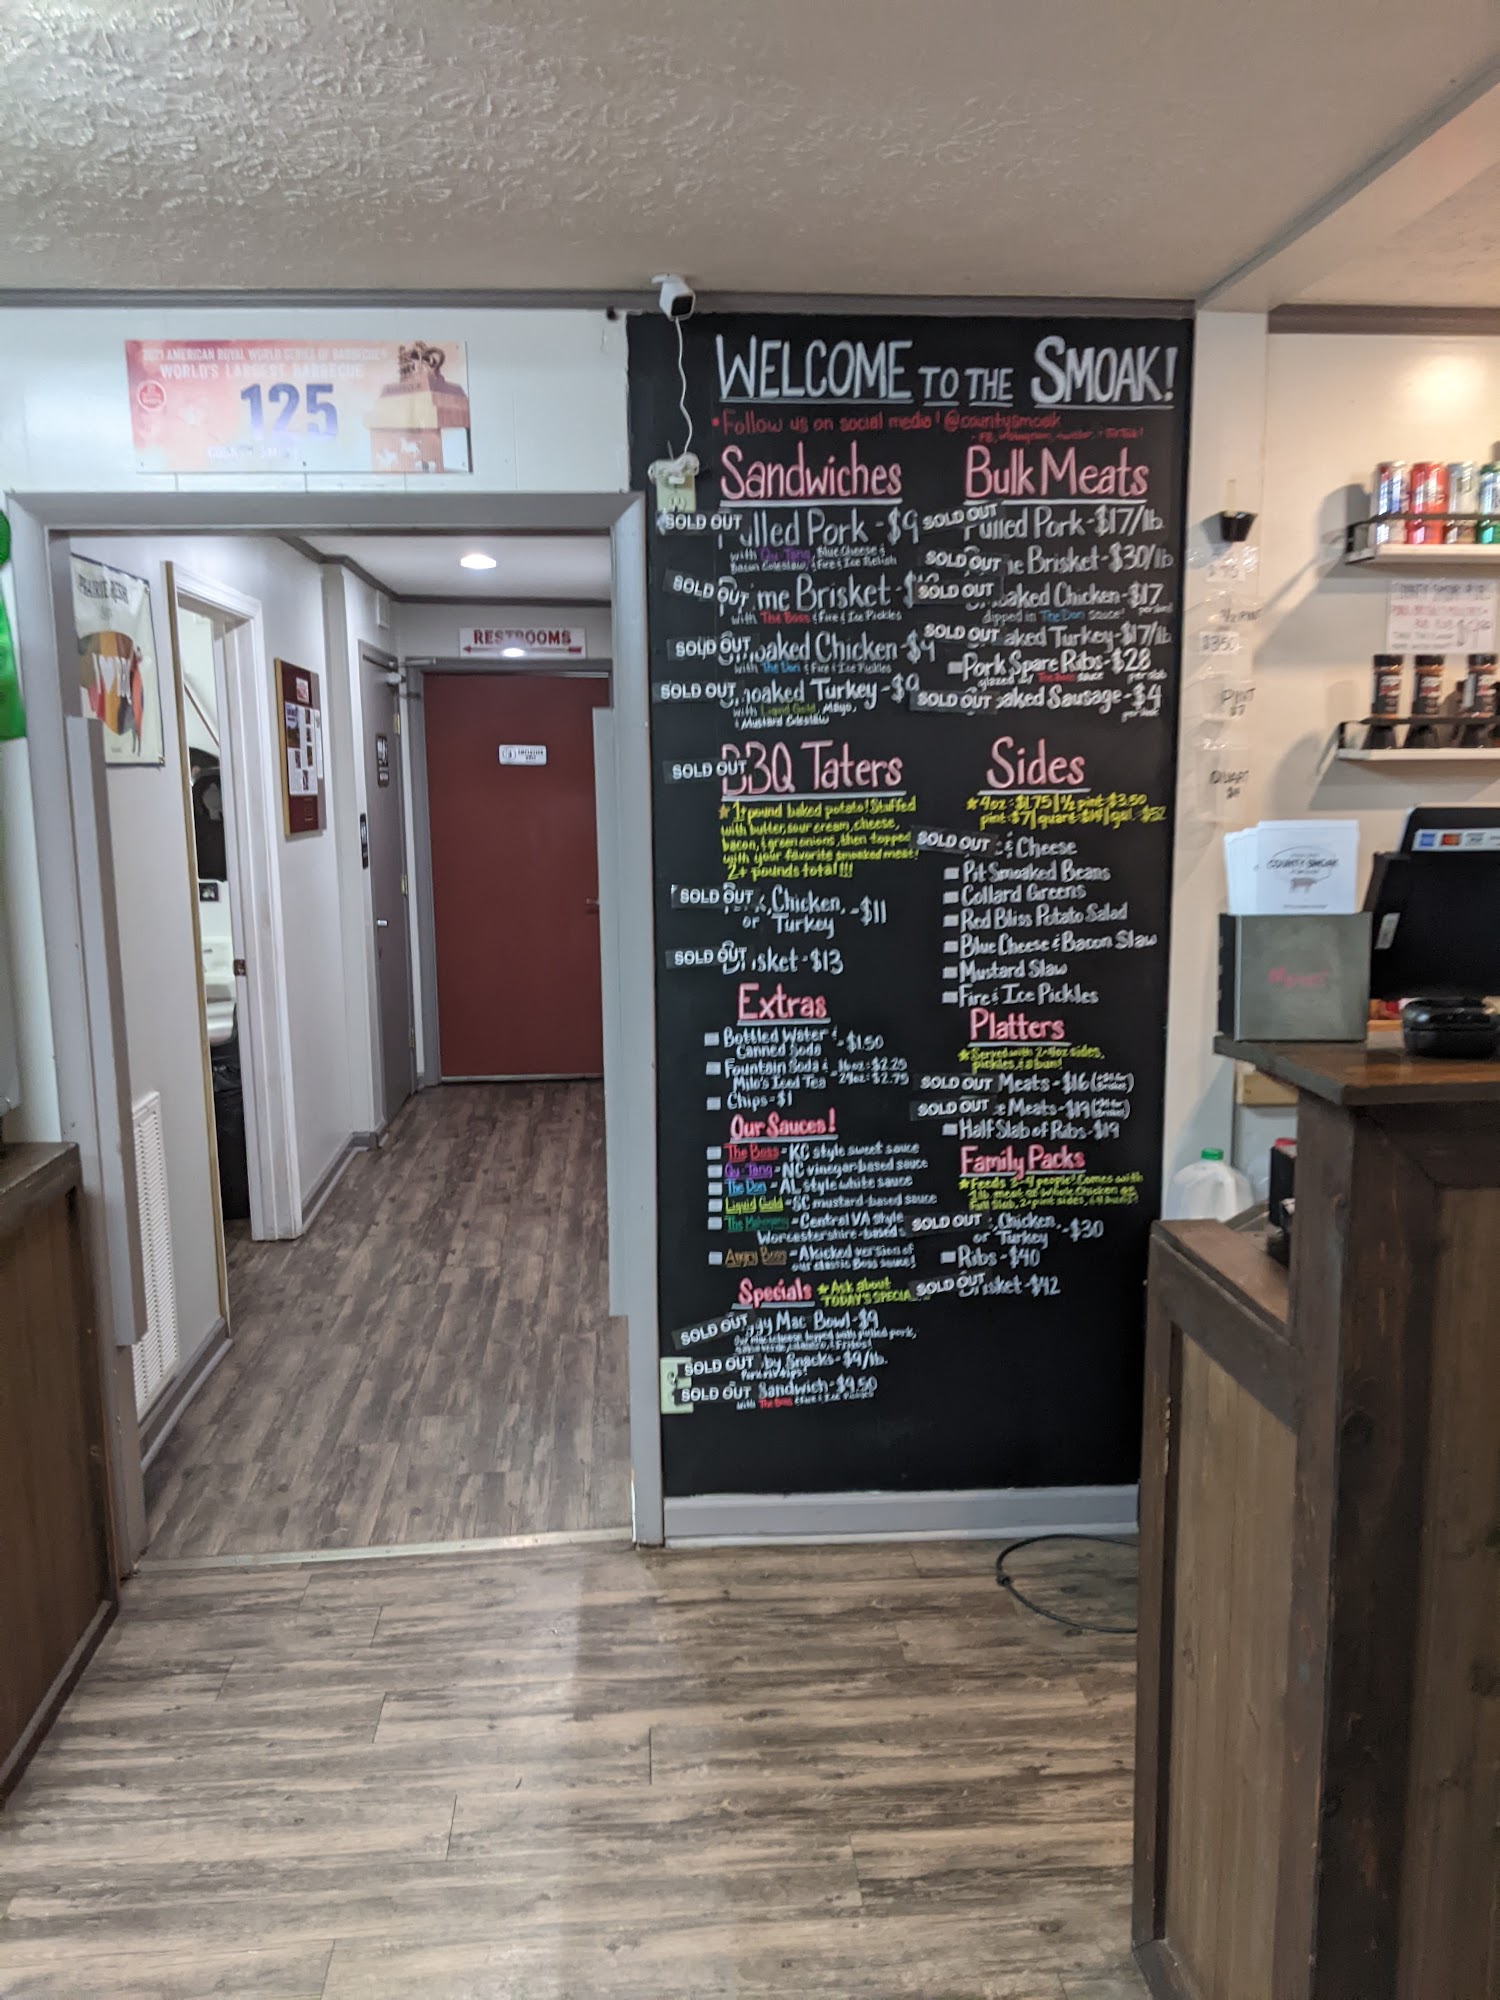 2021 AMERICAN ROYAL WORLD SERIES OF BARBECUE
WORLD'S LARGEST BARBECUE
125
COUNTY SMOAK
RESTROOMS
WELCOME TO THE SMOAK!
• Follow us on social media! @countysmoak
Sandwiches
SOLD OUT ulled Pork - $9
with Qu-Tang, Blue Cheese &
Bacon Coleslaw, & Fire & Ice Relish
SOLD OUT me Brisket - $
with The Boss & Fire & Ice Pickles
SOLD OUT oaked Chicken - $9
with The Don & Fire & Ice Pickles
SOLD OUT oaked Turkey - $9
with Liquid Gold, Mayo,
& Mustard Coleslaw
SOLD OUT BBQ Taters
★ 1+ pound baked potato! Stuffed
with butter, sour cream, cheese,
bacon, & green onions, then topped
with your favorite smoaked meat!
2+ pounds total!!!
SOLD OUT k, Chicken, - $11
or Turkey
SOLD OUT isket - $13
Extras
Bottled Water & - $1.50
Canned Soda
Fountain Soda & - 16oz: $2.25
Milo's Iced Tea - 24oz: $2.75
Chips - $1
Our Sauces!
The Boss - KC style sweet sauce
Qu-Tang - NC vinegar-based sauce
The Don - AL style white sauce
Liquid Gold - SC mustard-based sauce
The Mahogany - Central VA style
Worcestershire-based
Angry Boss - A kicked version of
our classic Boss sauce!
Specials ★ Ask about
TODAY'S SPECIA
SOLD OUT ggy Mac Bowl - $9
Our mac & cheese topped with pulled pork,
& Fritos!
SOLD OUT by Snacks - $9/lb.
Pork rib tips!
SOLD OUT Sandwich - $9.50
with The Boss & Fire & Ice Pickles
Bulk Meats
SOLD OUT Pulled Pork - $17/lb
SOLD OUT e Brisket - $30/lb
SOLD OUT oaked Chicken - $17
dipped in The Don sauce!
SOLD OUT aked Turkey - $17/lb
Pork Spare Ribs - $28
glazed by The Boss sauce per slab
SOLD OUT aked Sausage - $4
Sides
★ 4oz: $1.75 | ½ pint: $3.50
pint: $7 | quart: $14 | gal: $52
SOLD OUT & Cheese
Pit Smoaked Beans
Collard Greens
Red Bliss Potato Salad
Blue Cheese & Bacon Slaw
Mustard Slaw
Fire & Ice Pickles
Platters
★ Served with 2-4oz sides,
pickles, & a bun!
SOLD OUT Meats - $16
SOLD OUT e Meats - $19
Half Slab of Ribs - $19
Family Packs
★ Feeds 3-4 people! Comes with
1 lb meat or Whole Chicken or
Full Slab, 2-pint sides, & 4 buns!
SOLD OUT , Chicken, - $30
or Turkey
Ribs - $40
SOLD OUT isket - $42
½ PINT
$3.50
PINT
$7
QUART
COUNTY SMOAK